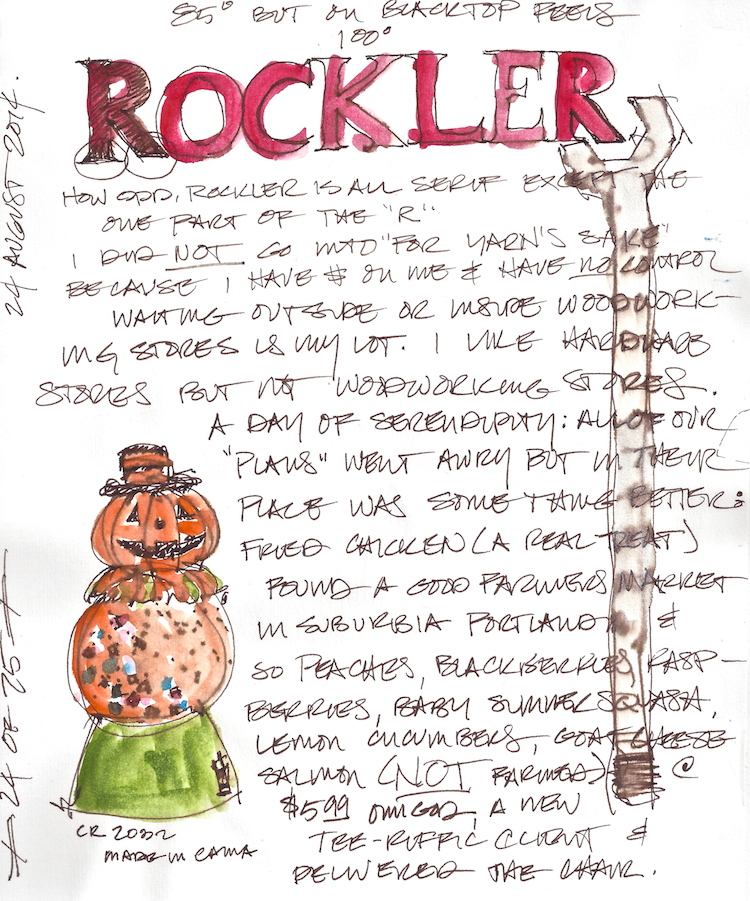 85° BUT ON BLACKTOP FEELS
100°
ROCKLER
24 AUGUST 2014.
HOW ODD, ROCKLER IS ALL SERIF EXCEPT THE
ONE PART OF THE "R"
I DID NOT GO INTO "FOR YARN'S SAKE"
BECAUSE I HAVE $ ON ME & HAVE NO CONTROL
WAITING OUTSIDE OR INSIDE WOODWORK-
ING STORES IS MY LOT. I LIKE HARDWARE
STORES BUT NOT WOODWORKING STORES.
A DAY OF SERENDIPITY: ALL OF OUR
"PLANS" WENT AWRY BUT IN THEIR
PLACE WAS SOMETHING BETTER:
FRIED CHICKEN (A REAL TREAT)
FOUND A GOOD FARMERS MARKET
IN SUBURBIA PORTLAND &
SO PEACHES, BLACKBERRIES, RASP-
BERRIES, BABY SUMMER SQUASH,
LEMON CUCUMBERS, GOAT CHEESE
SALMON (NOT FARMED) @
$5.99 OMIGOD, A NEW
TEE-RIFFIC CLIENT &
DELIVERED THE CHAIR.
24 OF 75
CR 2032
MADE IN CHINA